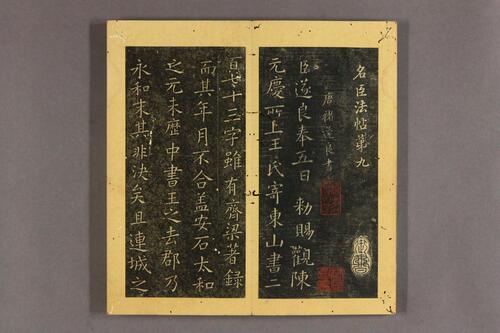 名臣法帖第九
唐褚遂良書
臣遂良奉五日敕賜觀陳
元慶所上王氏寄東山書二
百七十三字雖有齊梁著錄
而其年月不合盖安石太和
之元未歷中書王之去郡乃
永和末其非決矣且連城之